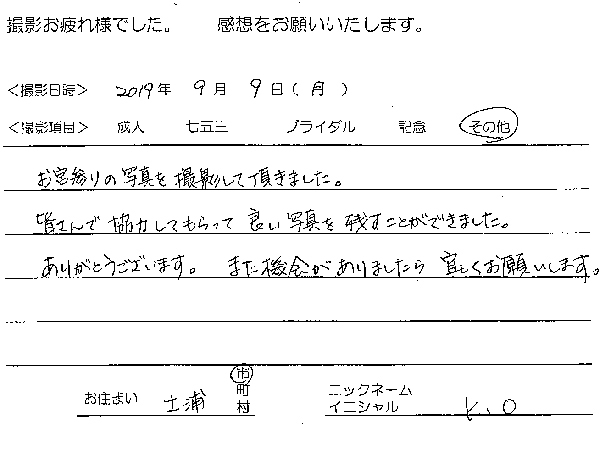 撮影お疲れ様でした。 感想をお願いいたします。
＜撮影日時＞ 2019年 9月 9日(月)
＜撮影項目＞ 成人 七五三 ブライダル 記念 その他
お宮参りの写真を撮影して頂きました。
皆さんで協力してもらって良い写真を残すことができました。
ありがとうございます。 また機会がありましたら宜しくお願いします。
お住まい 土浦 市町村 ニックネーム イニシャル